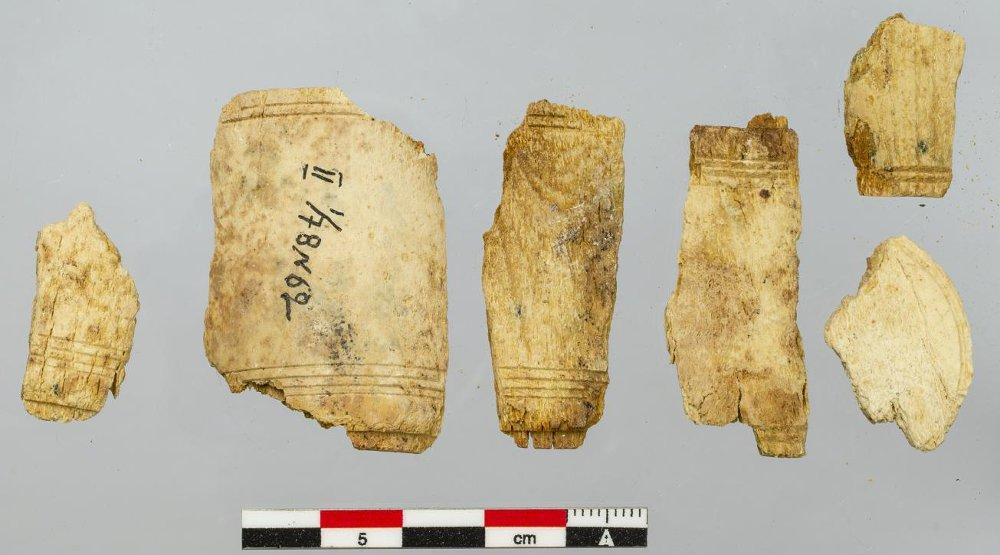 II 1/78N62
5 cm